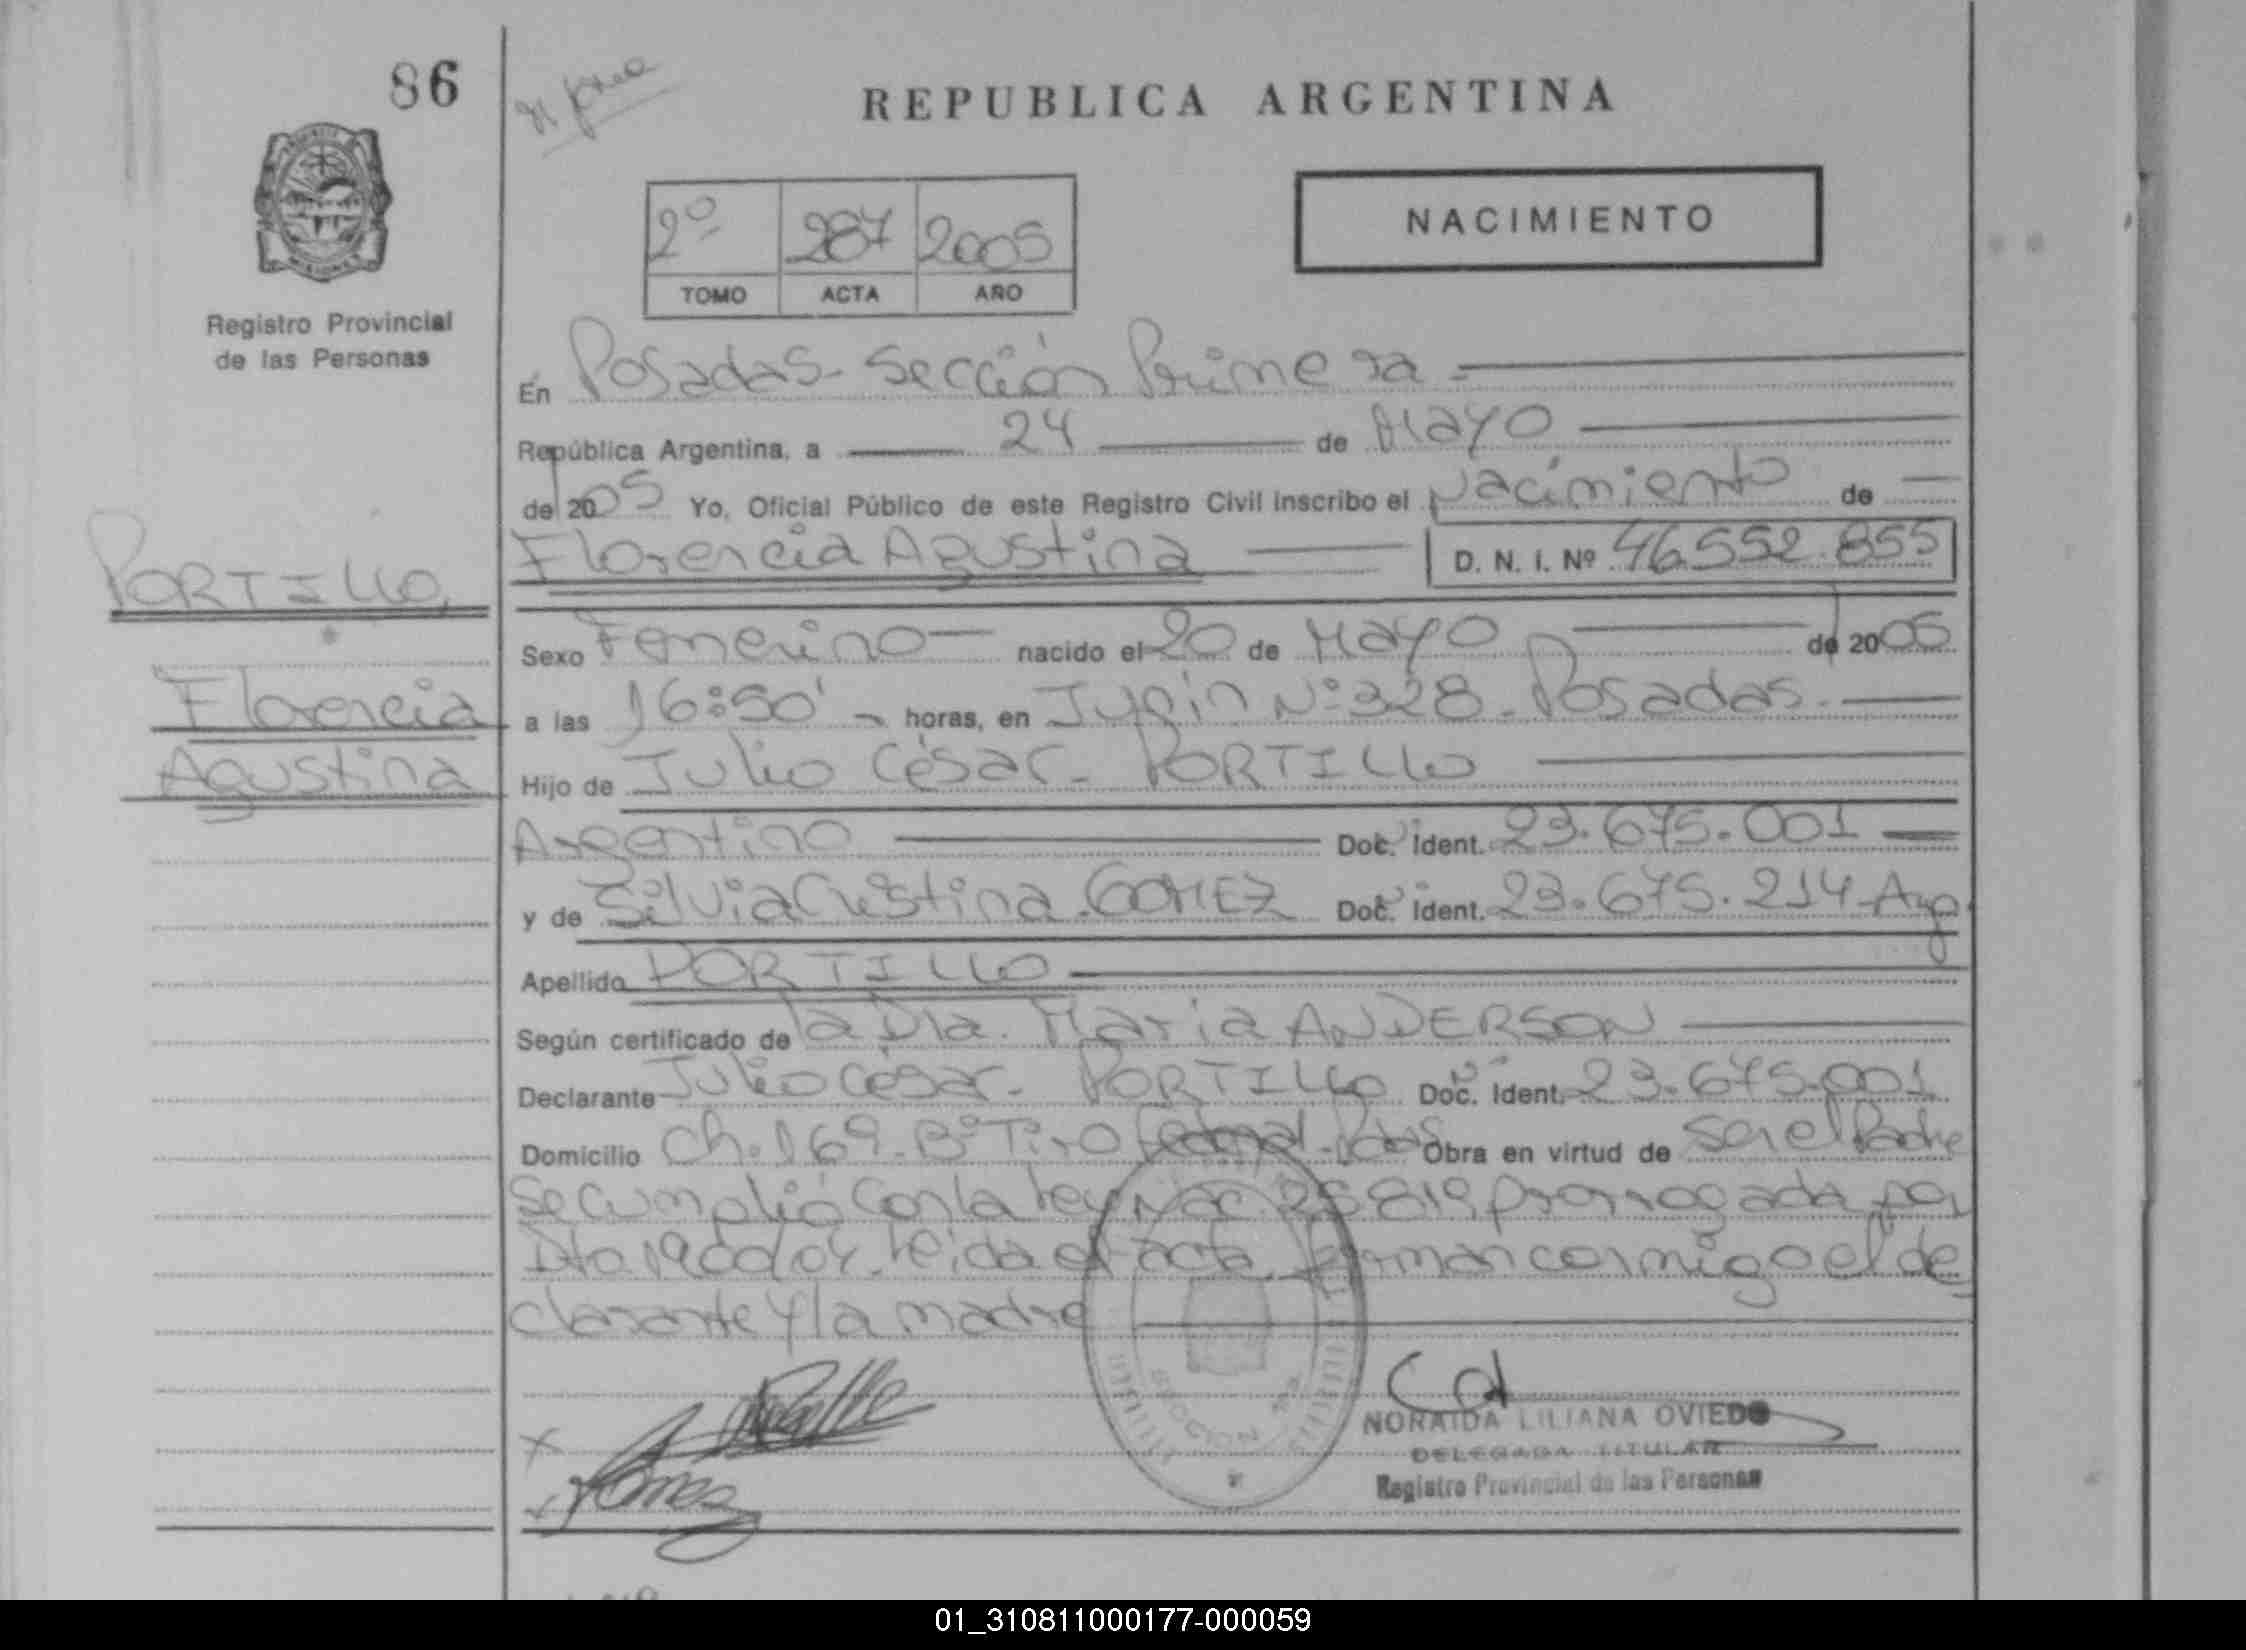 86
REPUBLICA ARGENTINA
2º 287 2005
TOMO ACTA AÑO
NACIMIENTO
Registro Provincial
de las Personas
En Posadas - Sección Primera -
República Argentina, a 24 de Mayo
de 2005 Yo, Oficial Público de este Registro Civil inscribo el Nacimiento de
Florencia Agustina D. N. I. Nº 46.552.855
PORTILLO,
Florencia
Agustina
Sexo Femenino nacido el 20 de Mayo de 2005
a las 16:50' horas, en Junín Nº 328 - Posadas.
Hijo de Julio César - PORTILLO
Argentino Doc. Ident. 23.675.001
y de Silvia Cristina. GOMEZ Doc. Ident. 23.675.214 - Arg.
Apellido PORTILLO
Según certificado de la Dra. Maria ANDERSON
Declarante Julio César - PORTILLO Doc. Ident. 23.675.001
Domicilio Ch. 169 - Bº Tiro Federal - Pdas Obra en virtud de ser el Padre
Se cumplió con la Ley Nac. 25819 prorrogada por
Dto leida el acta firman conmigo el de
clarante y la madre
NORAIDA LILIANA OVIEDO
DELEGADA TITULAR
Registro Provincial de las Personas
01_310811000177-000059